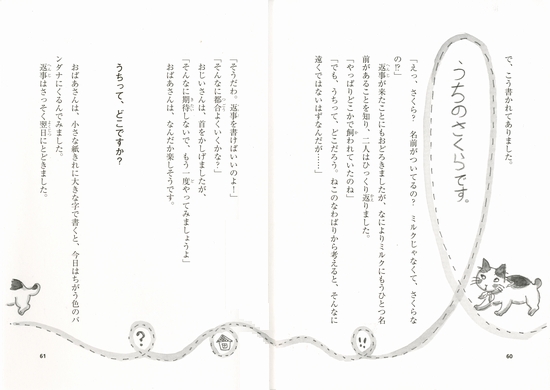 で、こう書かれてありました。
うちのさくらです。
「えっ、さくら？　名前がついてるの？　ミルクじゃなくて、さくらな
の!?」
返事が来たことにもおどろきましたが、なによりミルクにもうひとつ名
前があることを知り、二人はひっくり返りました。
「やっぱりどこかで飼われていたのね」
「でも、うちって、どこだろう。ねこのなわばりから考えると、そんなに
遠くではないはずなんだが……」
!!
60
「そうだわ。返事を書けばいいのよー！」
「そんなに都合よくいくかな？」
おじいさんは、首をかしげましたが、
「そんなに期待しないで、もう一度やってみましょうよ」
おばあさんは、なんだか楽しそうです。
うちって、どこですか？
おばあさんは、小さな紙きれに大きな字で書くと、今日はちがう色のバ
ンダナにくるんでみました。
返事はさっそく翌日にとどきました。
?
61